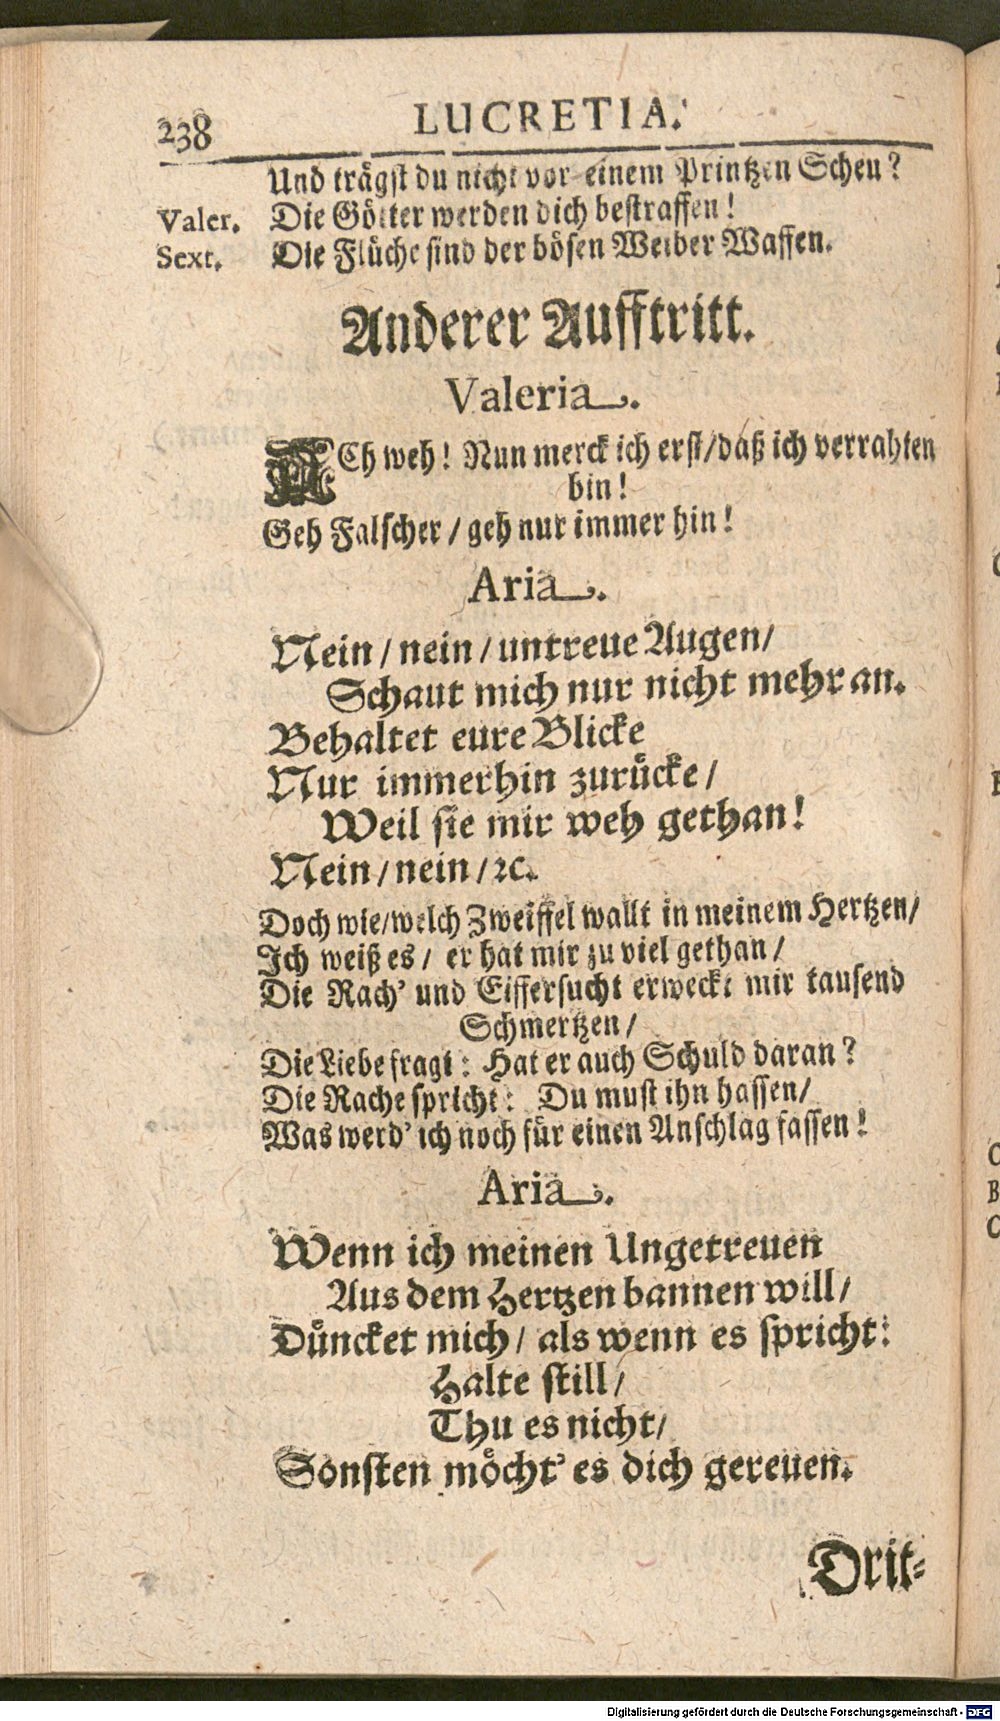 238 LUCRETIA.
Und trägst du nicht vor einem Printzen Scheu?
Valer. Die Götter werden dich bestraffen!
Sext. Die Flüche sind der bösen Weiber Waffen.
Anderer Aufftritt.
Valeria.
ACh weh! Nun merck ich erst/daß ich verrahten
bin!
Geh Falscher / geh nur immer hin!
Aria.
Nein / nein / untreue Augen/
Schaut mich nur nicht mehr an.
Behaltet eure Blicke
Nur immerhin zurücke /
Weil sie mir weh gethan!
Nein / nein / ꝛc.
Doch wie/welch Zweiffel wallt in meinem Hertzen/
Ich weiß es / er hat mir zu viel gethan /
Die Rach' und Eiffersucht erweckt mir tausend
Schmertzen /
Die Liebe fragt: Hat er auch Schuld daran?
Die Rache spricht: Du must ihn hassen/
Was werd' ich noch für einen Anschlag fassen!
Aria.
Wenn ich meinen Ungetreuen
Aus dem Hertzen bannen will /
Düncket mich / als wenn es spricht:
Halte still /
Thu es nicht /
Sonsten möcht' es dich gereuen.
Drit-
Digitalisierung gefördert durch die Deutsche Forschungsgemeinschaft - DFG